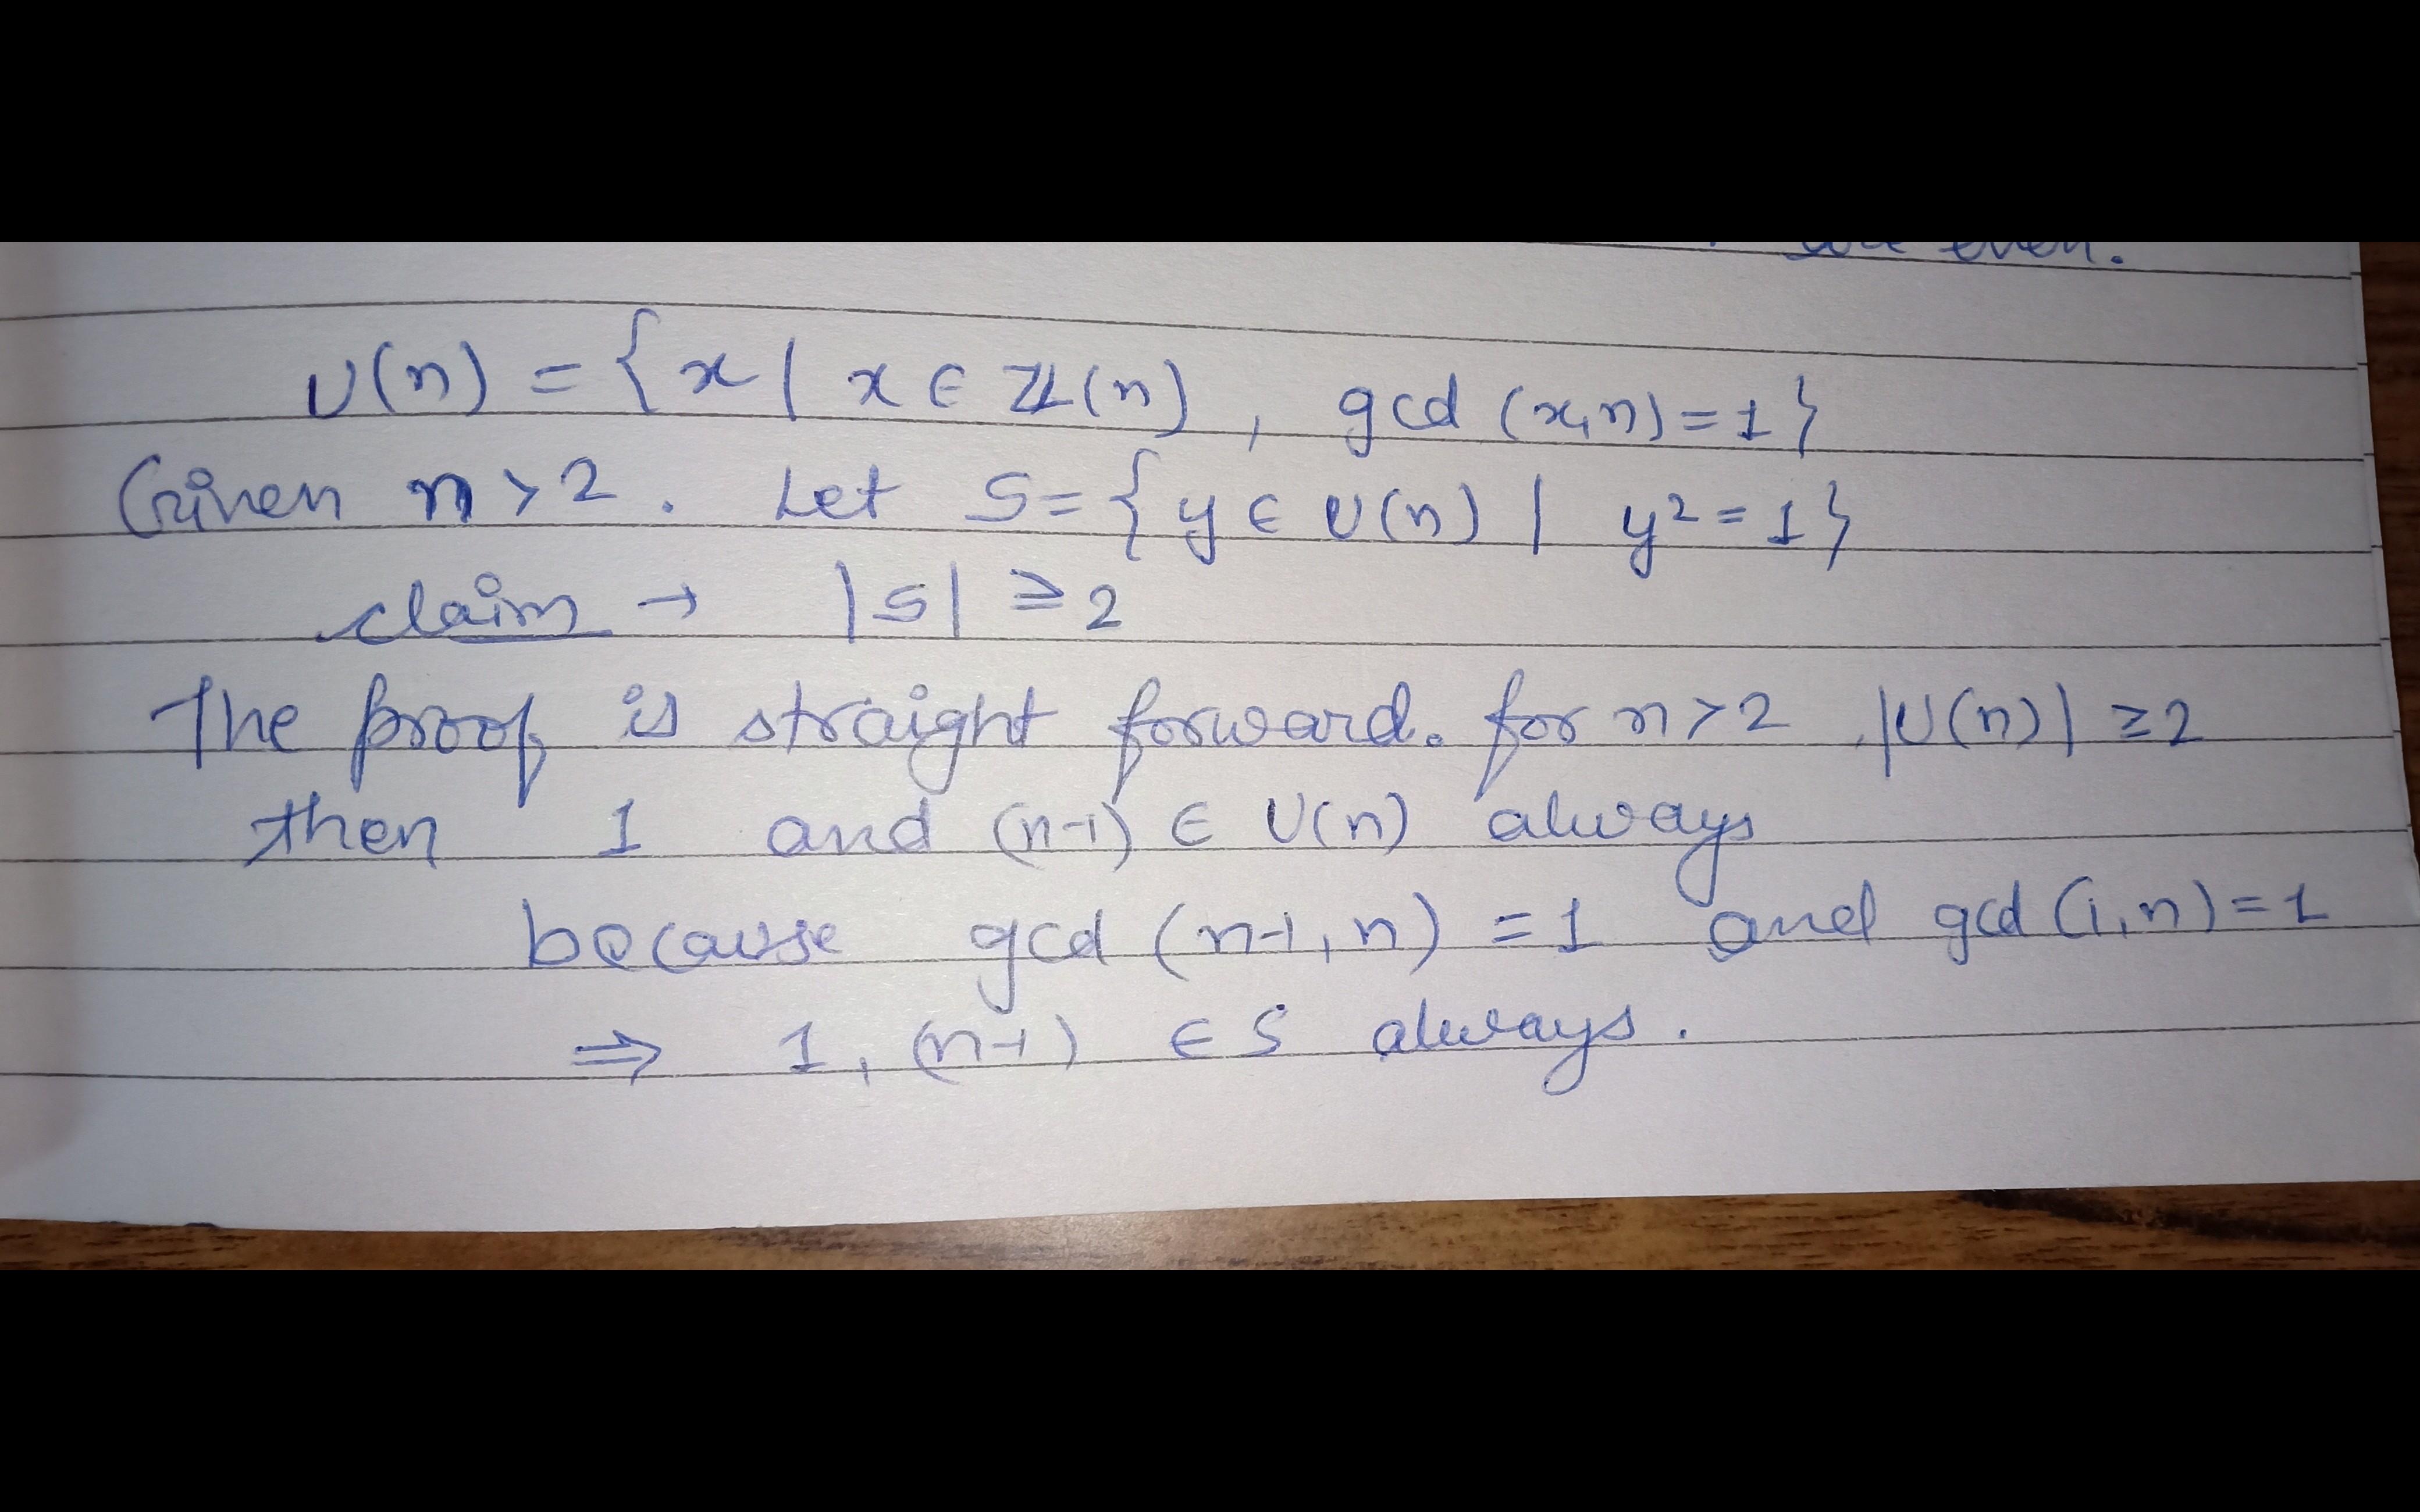 are even.
U(n) = {x | x ∈ ℤ(n), gcd (x,n) = 1}
Given n > 2. Let S = {y ∈ U(n) | y² = 1}
claim → |S| ≥ 2
The proof is straight forward. for n > 2 |U(n)| ≥ 2
then 1 and (n-1) ∈ U(n) always
because gcd (n-1, n) = 1 and gcd (1, n) = 1
⇒ 1, (n-1) ∈ S always.